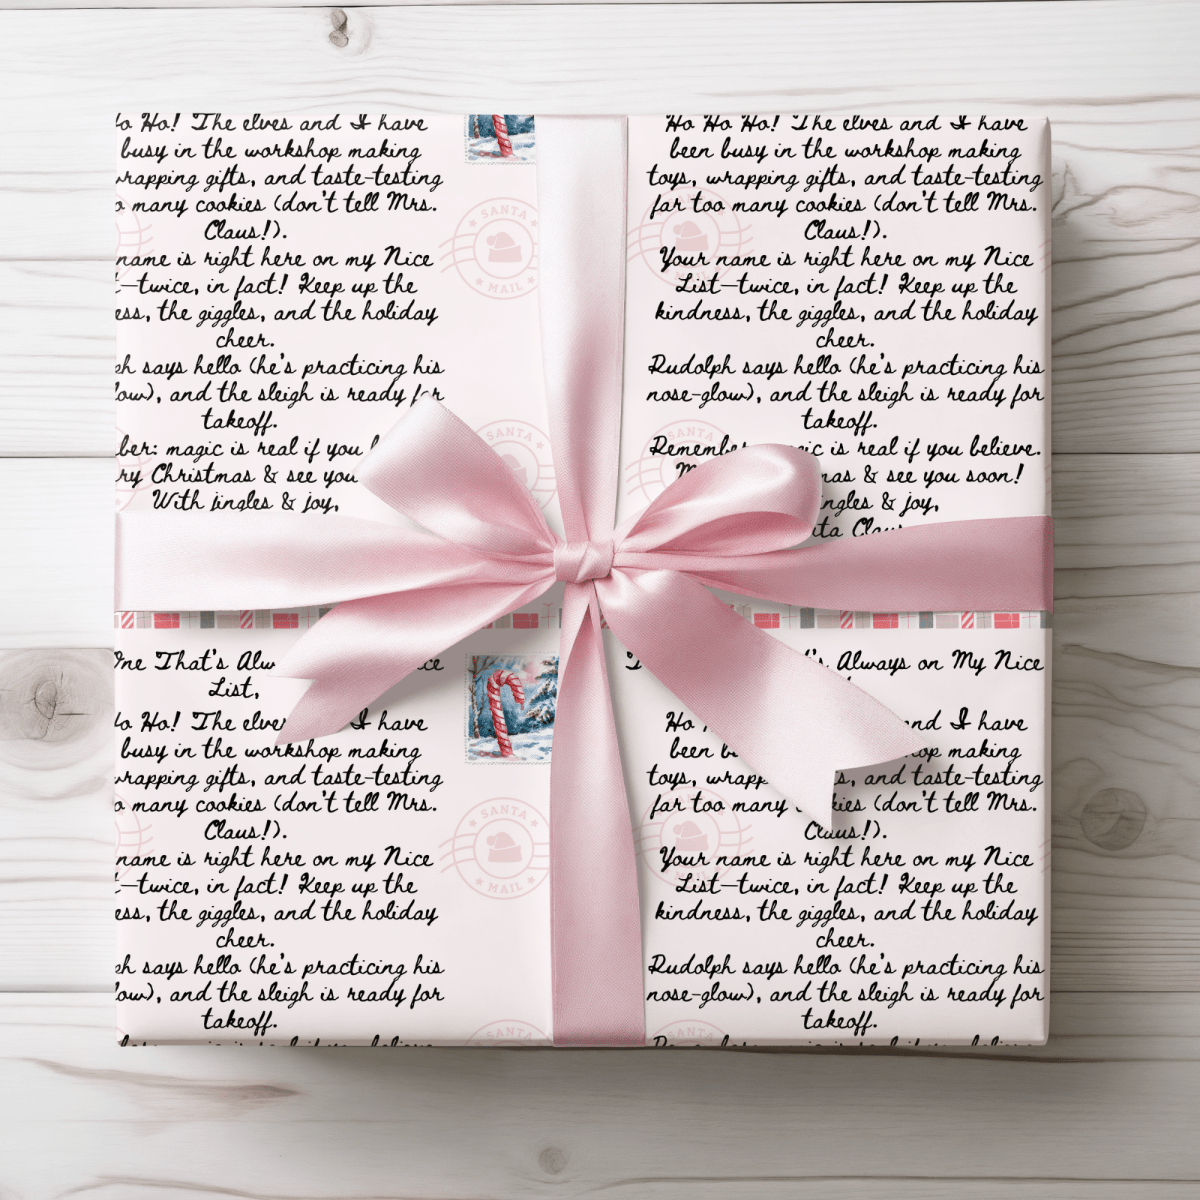 Ho! The elves and I have
busy in the workshop making
wrapping gifts, and taste-testing
many cookies (don't tell Mrs.
Claus!).
name is right here on my Nice
—twice, in fact! Keep up the
ess, the giggles, and the holiday
cheer.
ph says hello (he's practicing his
low), and the sleigh is ready for
takeoff.
ber: magic is real if you
ry Christmas & see you
With jingles & joy,
SANTA
MAIL
SANTA
Ho Ho Ho! The elves and I have
been busy in the workshop making
toys, wrapping gifts, and taste-testing
far too many cookies (don't tell Mrs.
Claus!).
Your name is right here on my Nice
List—twice, in fact! Keep up the
kindness, the giggles, and the holiday
cheer.
Rudolph says hello (he's practicing his
nose-glow), and the sleigh is ready for
takeoff.
Remember magic is real if you believe.
M mas & see you soon!
ingles & joy,
ta Claus
SANTA
MAIL
SANTA
One That's Alw ce
List,
Ho! The elves I have
busy in the workshop making
wrapping gifts, and taste-testing
many cookies (don't tell Mrs.
Claus!).
name is right here on my Nice
—twice, in fact! Keep up the
ess, the giggles, and the holiday
cheer.
ph says hello (he's practicing his
low), and the sleigh is ready for
takeoff.
SANTA
MAIL
SANTA
's Always on My Nice
Ho nd I have
been bu op making
toys, wrapp s, and taste-testing
far too many kies (don't tell Mrs.
Claus!).
Your name is right here on my Nice
List—twice, in fact! Keep up the
kindness, the giggles, and the holiday
cheer.
Rudolph says hello (he's practicing his
nose-glow), and the sleigh is ready for
takeoff.
SANTA
MAIL
SANTA